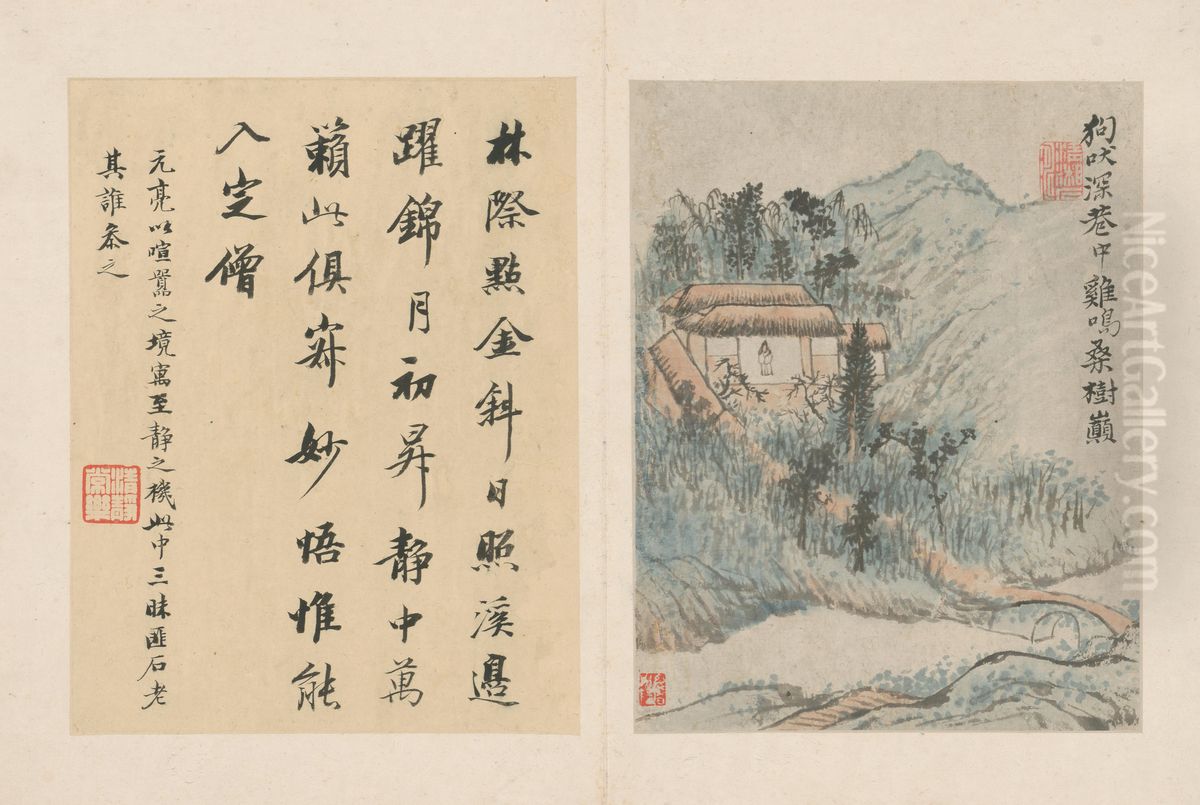 狗吠深巷中雞鳴桑樹巔
林際點金斜日照溪邊
躍錦月初昇靜中萬
籟此俱寂妙悟惟能
入定僧
元亮以喧囂之境寓至靜之機此中三昧匪石老
其誰參之
清靜
NiceArtGallery.com